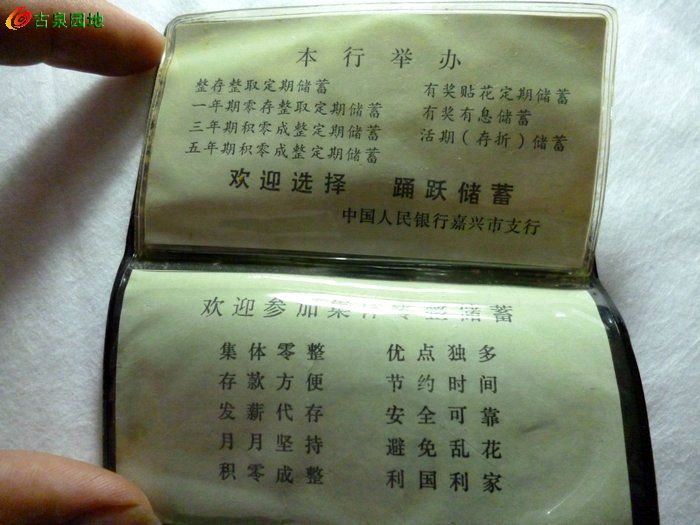 古泉园地
本行举办
整存整取定期储蓄
一年期零存整取定期储蓄
三年期积零成整定期储蓄
五年期积零成整定期储蓄
有奖贴花定期储蓄
有奖有息储蓄
活期(存折)储蓄
欢迎选择 踊跃储蓄
中国人民银行嘉兴市支行
欢迎参加集体零整储蓄
集体零整
存款方便
发薪代存
月月坚持
积零成整
优点独多
节约时间
安全可靠
避免乱花
利国利家